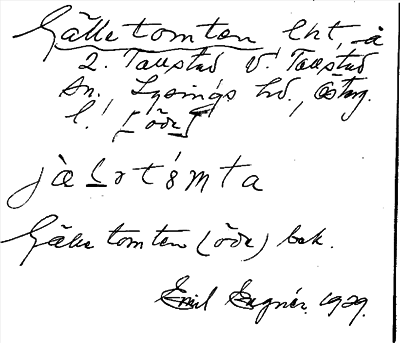 Gälletomten lht, å
2. Taustad V. Taustad
sn., Lysings hd., Östg.
l. [öde]
jæ̀ lɘt ó̤mta
Gälletomten (öde) bek.
Emil Eugnér. 1929.